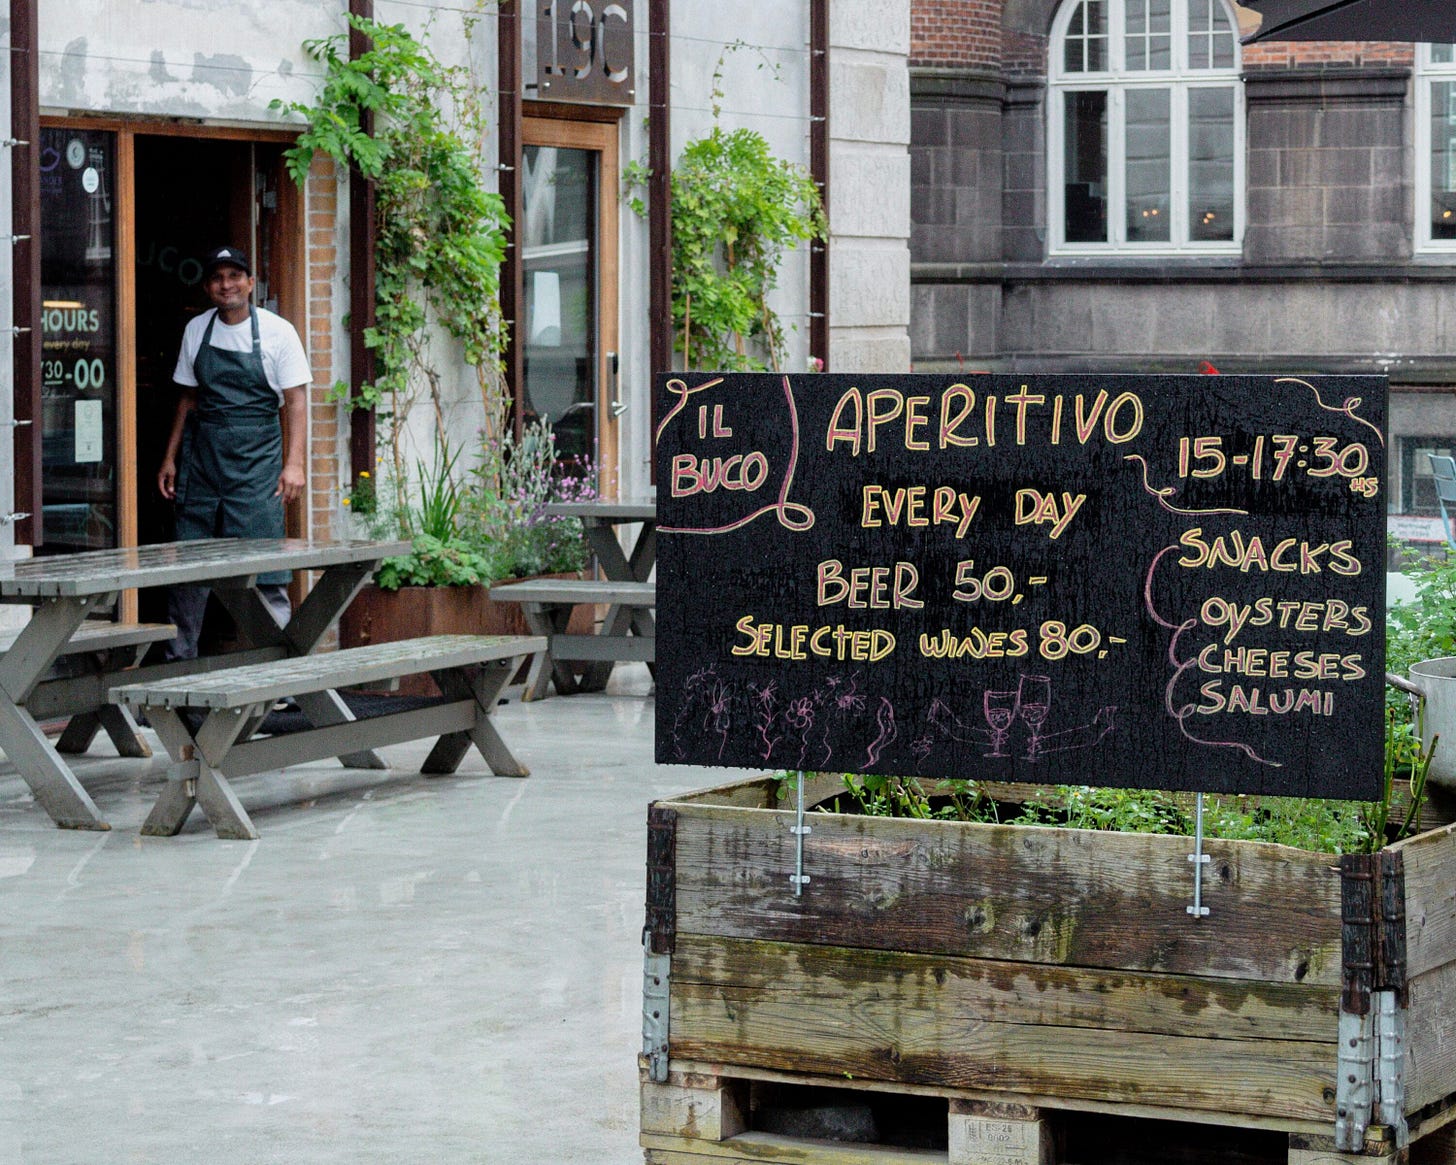 19C
UCO
HOURS
every day
30-00
IL
BUCO
APERITIVO
15-17:30
HS
EVERY DAY
BEER 50,-
SELECTED WINES 80,-
SNACKS
OYSTERS
CHEESES
SALUMI
ES-26